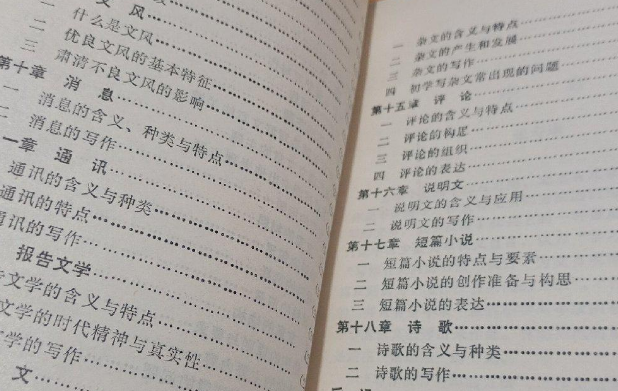 文 风
一 什么是文风
二 优良文风的基本特征
三 肃清不良文风的影响
第十章 消 息
一 消息的含义、种类与特点
二 消息的写作
一章 通 讯
通讯的含义与种类
通讯的特点
通讯的写作
报告文学
文学的含义与特点
文学的时代精神与真实性
文学的写作
文
一 杂文的含义与特点
二 杂文的产生和发展
三 杂文的写作
四 初学写杂文常出现的问题
第十五章 评 论
一 评论的含义与特点
二 评论的构思
三 评论的组织
四 评论的表达
第十六章 说明文
一 说明文的含义与应用
二 说明文的写作
第十七章 短篇小说
一 短篇小说的特点与要素
二 短篇小说的创作准备与构思
三 短篇小说的表达
第十八章 诗 歌
一 诗歌的含义与种类
二 诗歌的写作